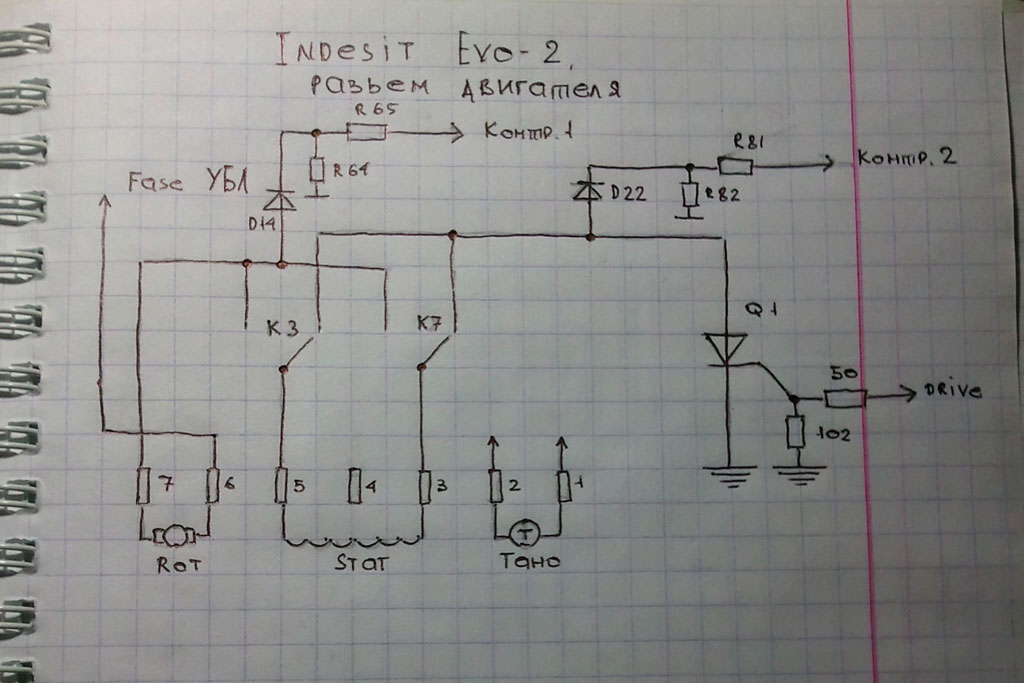 INDesiT Evo-2,
разъем двигателя
R65
Контр.1
R64
Fase УБЛ
D14
R81
Контр.2
D22
R82
K3
K7
Q1
50
DRive
102
7
6
5
4
3
2
1
T
RoT
STaT
Тахо